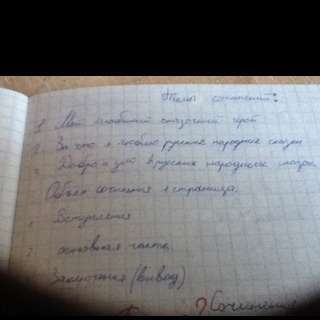 Темы сочинений:
1 Мой любимый сказочный герой
2 За что я люблю русские народные сказки
3 Добро и зло в русских народных сказках
Объём сочинения 1 страница.
Вступление
основная часть
Заключение (вывод)
Сочинение